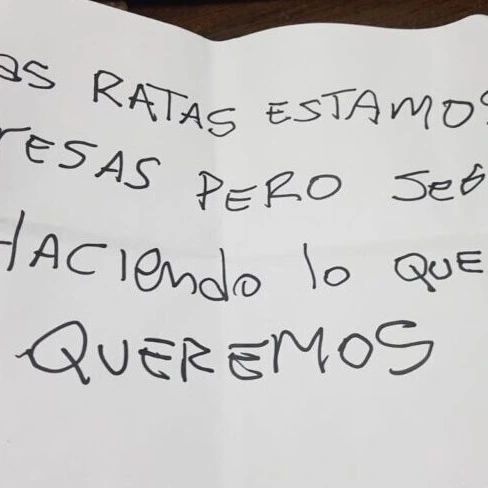 as RATAS ESTAMOS
rESAS PERO Seg
HACIEndo lo QUE
QUEREMOS